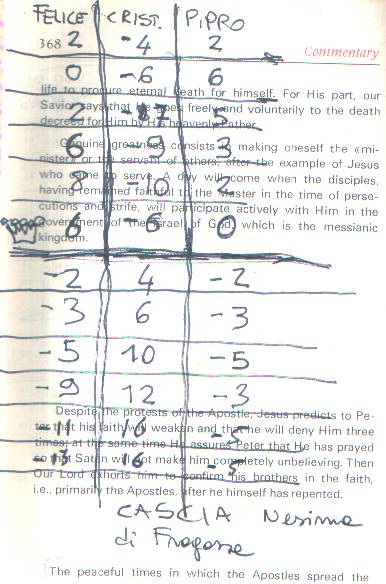 FELICE CRIST. PIPRO
368 2 -4 2
Commentary
0 -6 6
life to procure eternal death for himself. For His part, our
Savior says that He goes freely and voluntarily to the death
2 -7 5
decreed for Him by His heavenly Father.
Genuine greatness consists in making oneself the «mi-
6 -9 3
nister» or the servant of others, after the example of Jesus
who came to serve. A day will come when the disciples,
8 -10 2
having remained faithful to the Master in the time of perse-
cutions and strife, will participate actively with Him in the
6 -6 0
government of the Israel of God, which is the messianic
kingdom.
-2 4 -2
-3 6 -3
-5 10 -5
-9 12 -3
Despite the protests of the Apostle, Jesus predicts to Pe-
ter that his faith will weaken and that he will deny Him three
times; at the same time He assures Peter that He has prayed
so that Satan will not make him completely unbelieving. Then
-13 16 -3
Our Lord exhorts him to confirm his brothers in the faith,
i.e., primarily the Apostles, after he himself has repented.
CASCIA
di
The peaceful times in which the Apostles spread the